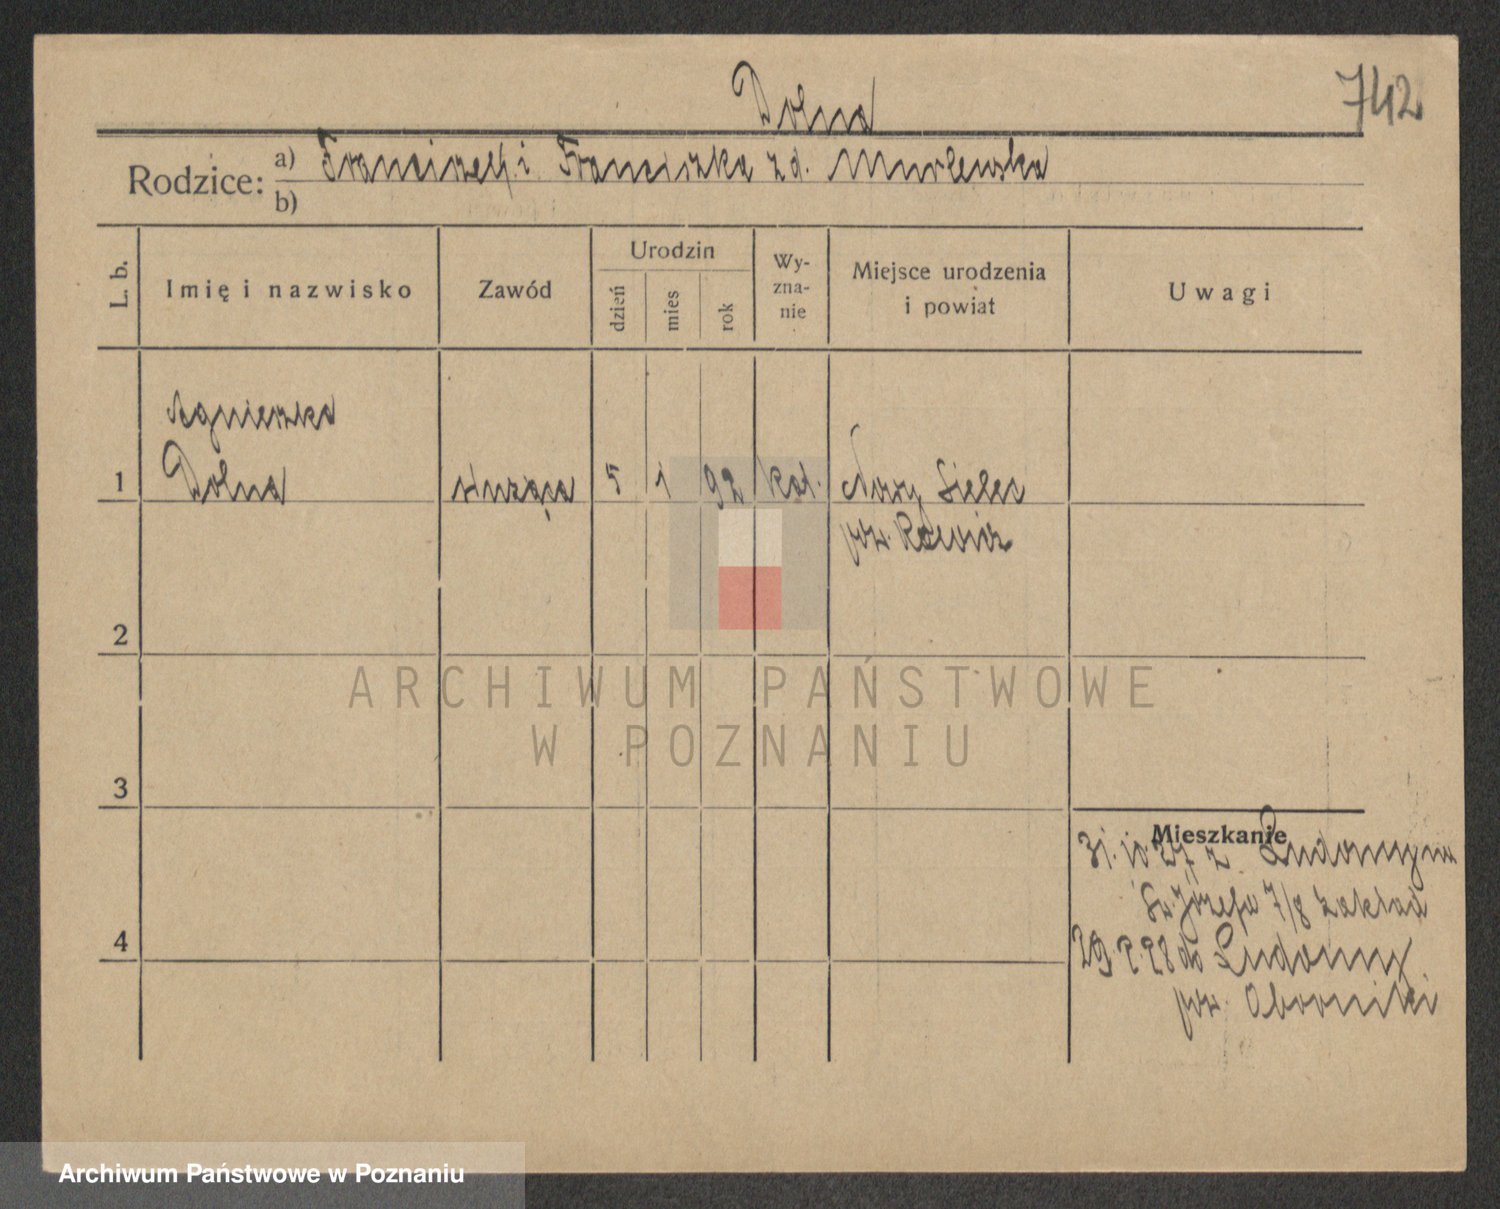 Dolna
742
Rodzice: a) Franciszek i Franciszka z d. Murlewska
b)
L. b. Imię i nazwisko Zawód Urodzin dzień mies rok Wy-zna-nie Miejsce urodzenia i powiat Uwagi
Agnieszka
1 Dolna służąca 5 1 92 kat. Nowy Sielec
pow. Rawicz
2
ARCHIWUM PAŃSTWOWE
W POZNANIU
3
Mieszkanie
31. 10. 27 z
Św. Józefa 7/8 zakład
29. 2. 28 do Ludomy
pow. Oborniki
4
Archiwum Państwowe w Poznaniu